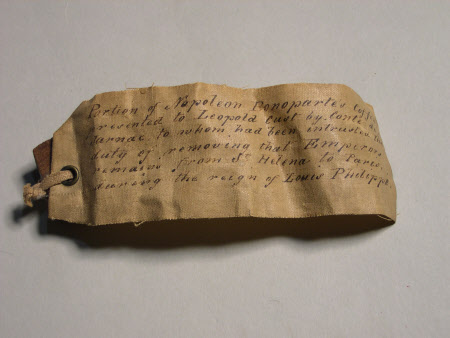 Portion of Napoleon Bonopartes
presented to Leopold Cust by Conte de
Jarnac to whom had been intrusted the
duty of removing that Emperors
remains from St Helena to Paris
during the reign of Louis Philippe